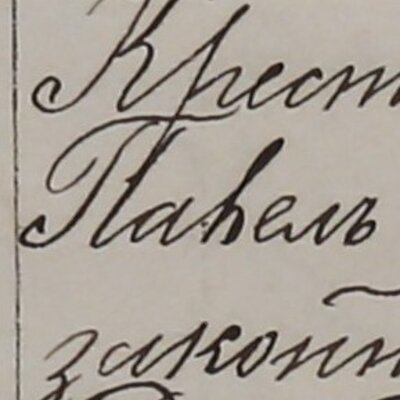 Крест
Павелъ
законн